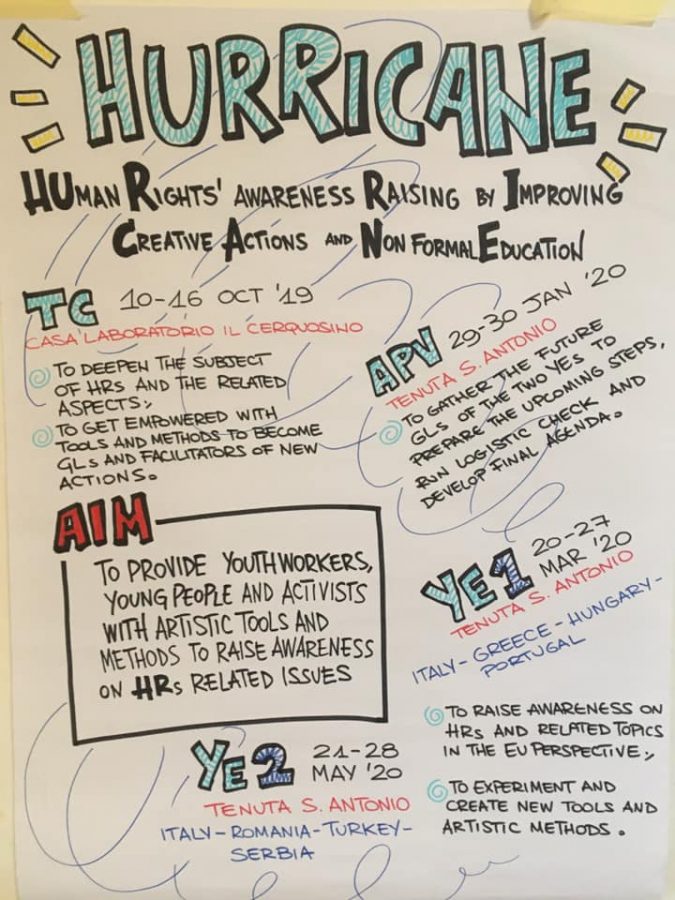 HURRICANE
HUMAN RIGHTS' AWARENESS RAISING BY IMPROVING
CREATIVE ACTIONS AND NON FORMAL EDUCATION
TC 10-16 OCT '19
CASA LABORATORIO IL CERQUOSINO
TO DEEPEN THE SUBJECT
OF HRs AND THE RELATED
ASPECTS;
TO GET EMPOWERED WITH
TOOLS AND METHODS TO BECOME
GLs AND FACILITATORS OF NEW
ACTIONS.
APV 29-30 JAN '20
TENUTA S. ANTONIO
TO GATHER THE FUTURE
GLs OF THE TWO YES TO
PREPARE THE UPCOMING STEPS,
RUN LOGISTIC CHECK AND
DEVELOP FINAL AGENDA.
AIM
TO PROVIDE YOUTHWORKERS,
YOUNG PEOPLE AND ACTIVISTS
WITH ARTISTIC TOOLS AND
METHODS TO RAISE AWARENESS
ON HRs RELATED ISSUES
YE1 20-27
MAR '20
TENUTA S. ANTONIO
ITALY - GREECE - HUNGARY -
PORTUGAL
TO RAISE AWARENESS ON
HRs AND RELATED TOPICS
IN THE EU PERSPECTIVE;
TO EXPERIMENT AND
CREATE NEW TOOLS AND
ARTISTIC METHODS.
YE2 21-28
MAY '20
TENUTA S. ANTONIO
ITALY - ROMANIA - TURKEY -
SERBIA